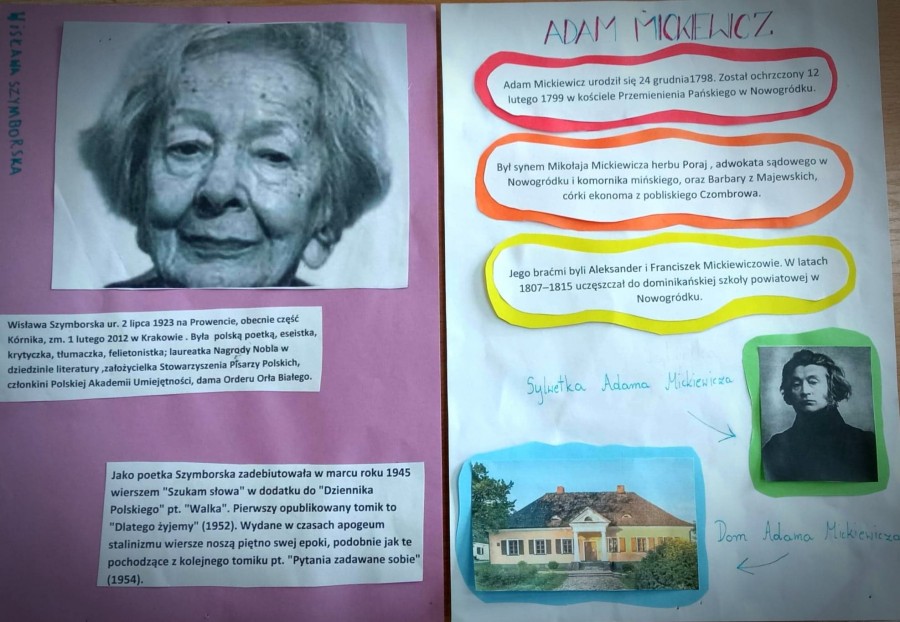 WISŁAWA SZYMBORSKA
Wisława Szymborska ur. 2 lipca 1923 na Prowencie, obecnie część
Kórnika, zm. 1 lutego 2012 w Krakowie . Była polską poetką, eseistka,
krytyczka, tłumaczka, felietonistka; laureatka Nagrody Nobla w
dziedzinie literatury ,założycielka Stowarzyszenia Pisarzy Polskich,
członkini Polskiej Akademii Umiejętności, dama Orderu Orła Białego.
Jako poetka Szymborska zadebiutowała w marcu roku 1945
wierszem "Szukam słowa" w dodatku do "Dziennika
Polskiego" pt. "Walka". Pierwszy opublikowany tomik to
"Dlatego żyjemy" (1952). Wydane w czasach apogeum
stalinizmu wiersze noszą piętno swej epoki, podobnie jak te
pochodzące z kolejnego tomiku pt. "Pytania zadawane sobie"
(1954).
ADAM MICKIEWICZ
Adam Mickiewicz urodził się 24 grudnia1798. Został ochrzczony 12
lutego 1799 w kościele Przemienienia Pańskiego w Nowogródku.
Był synem Mikołaja Mickiewicza herbu Poraj , adwokata sądowego w
Nowogródku i komornika mińskiego, oraz Barbary z Majewskich,
córki ekonoma z pobliskiego Czombrowa.
Jego braćmi byli Aleksander i Franciszek Mickiewiczowie. W latach
1807–1815 uczęszczał do dominikańskiej szkoły powiatowej w
Nowogródku.
Sylwetka Adama Mickiewicza
Dom Adama Mickiewicza